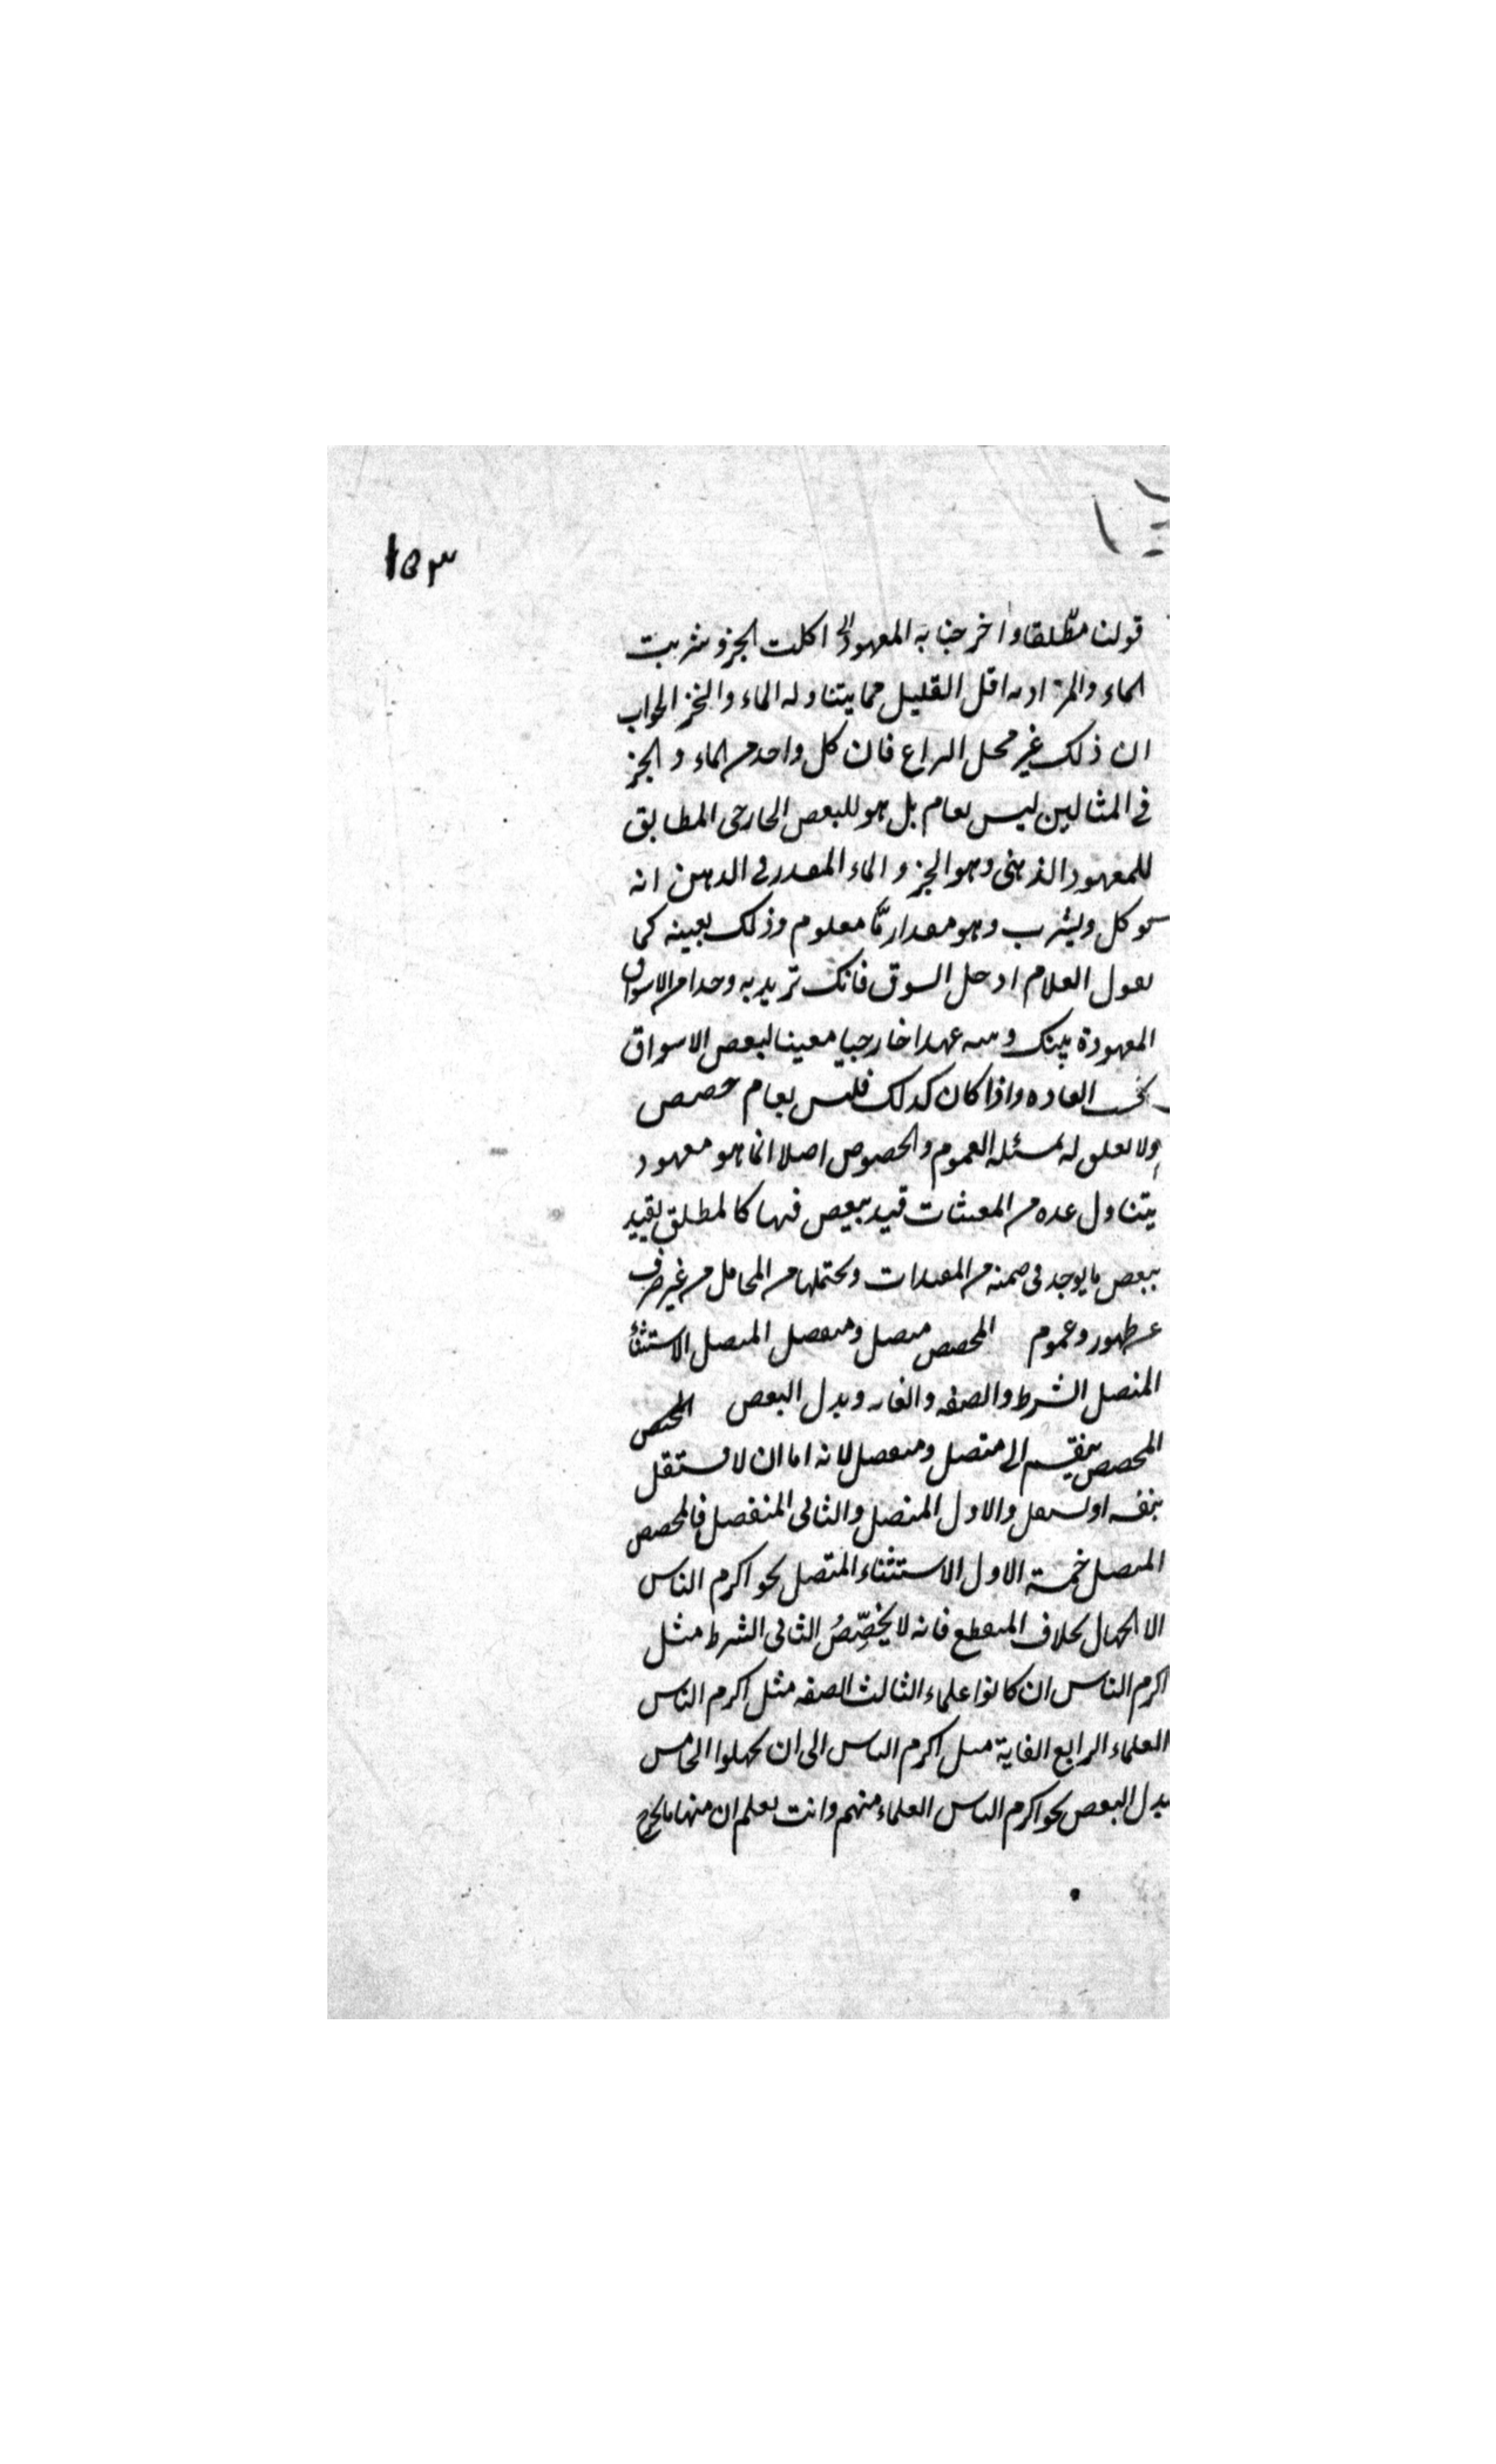 ١٥٣
قولنا مطلقا واخرجنا به المعهود الخ اكلت الخبز وشربت
الماء والمراد به اقل القليل مما يتناوله الماء والخبز الجواب
ان ذلك غير محل النزاع فان كل واحد من الماء والخبز
في المثالين ليس بعام بل هو للبعض الخارجى المطابق
للمعهود الذهنى وهو الخبز والماء المقدر فى الذهن انه
يوكل ويشرب وهو مقدار مّا معلوم وذلك بعينه كما
تقول للغلام ادخل السوق فانك تريد به واحدا من الاسواق
المعهودة بينك وبينه عهدا خارجيا معينا لبعض الاسواق
بحسب العاده واذا كان كذلك فليس بعام خصص
ولا تعلق له بمسئلة العموم والخصوص اصلا انما هو معهود
يتناول عده من المعينات قيد ببعض فيها كالمطلق يقيد
ببعض ما يوجد فى ضمنه من المقيدات ويحتملها من المحامل من غير صرف
عن ظهور وعموم المخصص متصل ومنفصل المتصل الاستثناء
المتصل الشرط والصفه والغايه وبدل البعض
المخصص ينقسم الى متصل ومنفصل لانه اما ان لا يستقل
بنفسه او يستقل والاول المتصل والثانى المنفصل فالمخصص
المتصل خمسة الاول الاستثناء المتصل نحو اكرم الناس
الا الجهال بخلاف المنقطع فانه لا يخصِّصُ الثانى الشرط مثل
اكرم الناس ان كانوا علماء الثالث الصفه مثل اكرم الناس
العلماء الرابع الغاية مثل اكرم الناس الى ان يجهلوا الخامس
بدل البعض نحو اكرم الناس العلماء منهم وانت تعلم ان منها ما يخرج